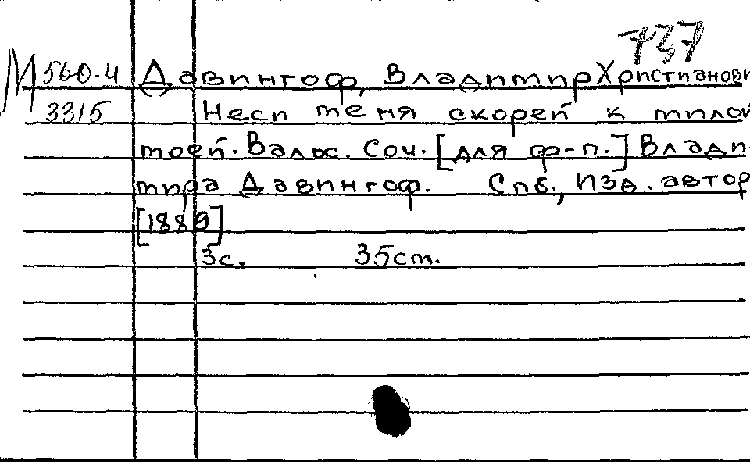 737
М 560-4 Давингоф, Владимир Христианови
3315 Неси меня скорей к милой
моей. Вальс. Соч. [для ф-п.] Влади-
мира Давингоф. Спб., Изд. автор
[1889]
3с. 35см.